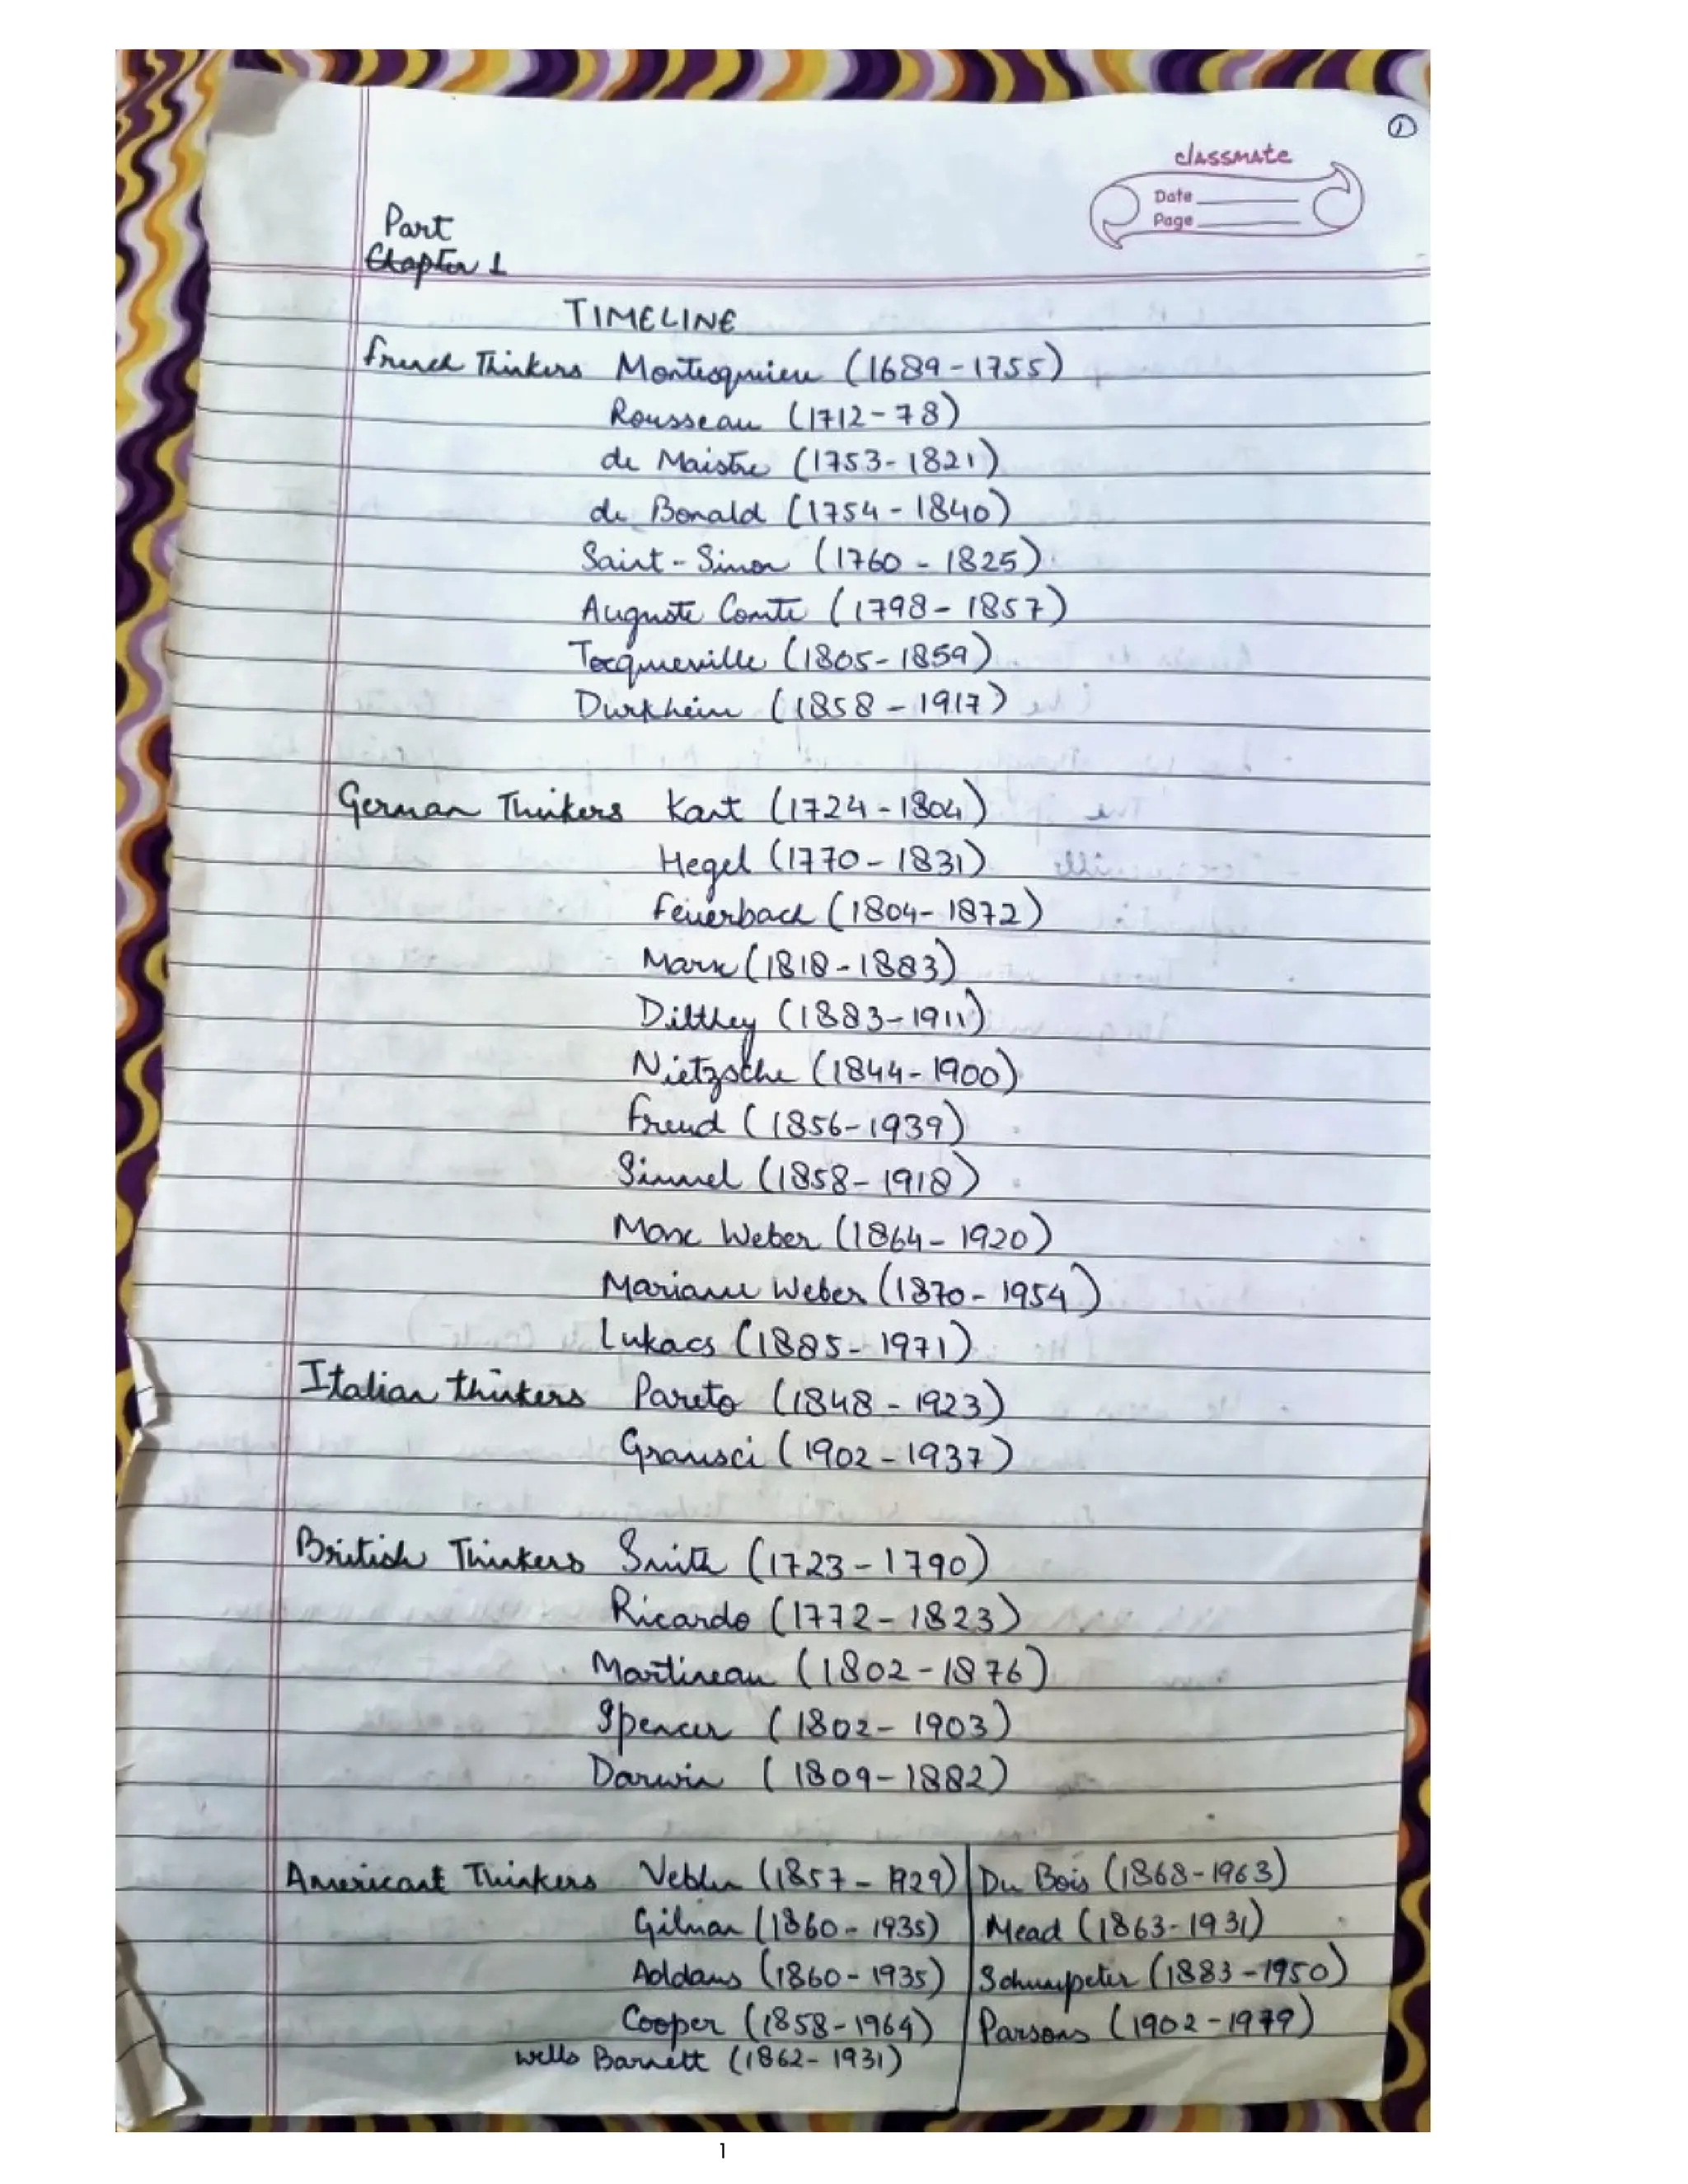 ①
classmate
Date
Page
Part
Chapter 1
TIMELINE
French Thinkers Montesquieu (1689-1755)
Rousseau (1712-78)
de Maistre (1753-1821)
de Bonald (1754-1840)
Saint-Simon (1760-1825)
Auguste Comte (1798-1857)
Tocqueville (1805-1859)
Durkheim (1858-1917)
German Thinkers Kant (1724-1804)
Hegel (1770-1831)
Feuerbach (1804-1872)
Marx (1818-1883)
Dilthey (1883-1911)
Nietzsche (1844-1900)
Freud (1856-1939)
Simmel (1858-1918)
Max Weber (1864-1920)
Mariane Weber (1870-1954)
Lukacs (1885-1971)
Italian thinkers Pareto (1848-1923)
Gramsci (1902-1937)
British Thinkers Smith (1723-1790)
Ricardo (1772-1823)
Martineau (1802-1876)
Spencer (1802-1903)
Darwin (1809-1882)
American Thinkers Veblen (1857-1929) Du Bois (1868-1963)
Gilman (1860-1935) Mead (1863-1931)
Addams (1860-1935) Schumpeter (1883-1950)
Cooper (1858-1964) Parsons (1902-1979)
Wells Barnett (1862-1931)
1